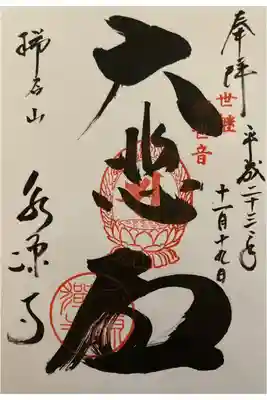 奉拝
平成二十三年
十一月十九日
世継
世音
大悲
瑞石山
永源寺